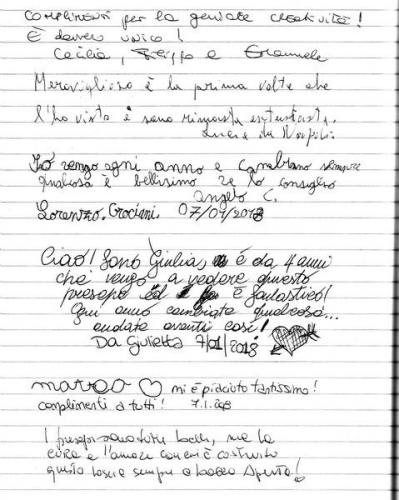 complimenti per la geniale creatività!
È davvero unico!
Cecilia, Filippo e Emanuele
Meraviglioso è la prima volta che
l'ho visto e sono rimasta entusiasta.
Lucia da Napoli
Io vengo ogni anno e cambiano sempre
qualcosa è bellissimo ve lo consiglio
angelo C.
Lorenzo. Crociani. 07/01/2018
Ciao! Sono Giulia, è da 4 anni
che vengo a vedere questo
presepe è fantastico!
Ogni anno cambiate qualcosa...
andate avanti così!
Da Giulietta 7/01/2018
marco mi è piaciuto tantissimo!
complimenti a tutti! 7.1.2018
I presepi sono tutti belli, ma la
cura e l'amore con cui è costruito
questo lascia sempre a bocca aperta!